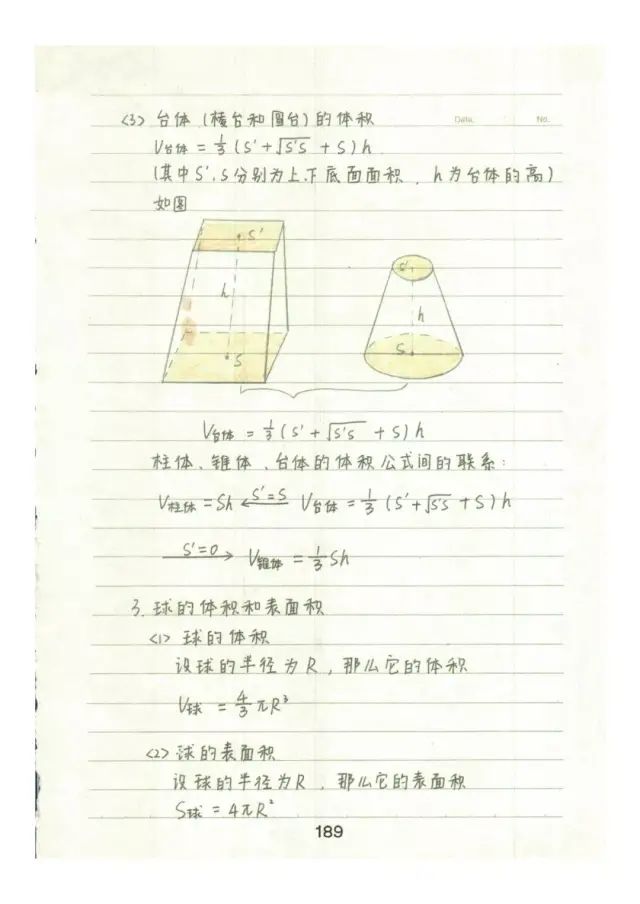 Date. No.
<3> 台体(棱台和圆台)的体积
V台体 = 1/3 (S' + √S'S + S) h
(其中S'、S分别为上、下底面面积, h为台体的高)
如图
S' S'
h h
S S
V台体 = 1/3 (S' + √S'S + S) h
柱体、锥体、台体的体积公式间的联系:
V柱体 = Sh ←S'=S— V台体 = 1/3 (S' + √S'S + S) h
—S'=0→ V锥体 = 1/3 Sh
3. 球的体积和表面积
<1> 球的体积
设球的半径为R, 那么它的体积
V球 = 4/3 πR³
<2> 球的表面积
设球的半径为R, 那么它的表面积
S球 = 4πR²
189